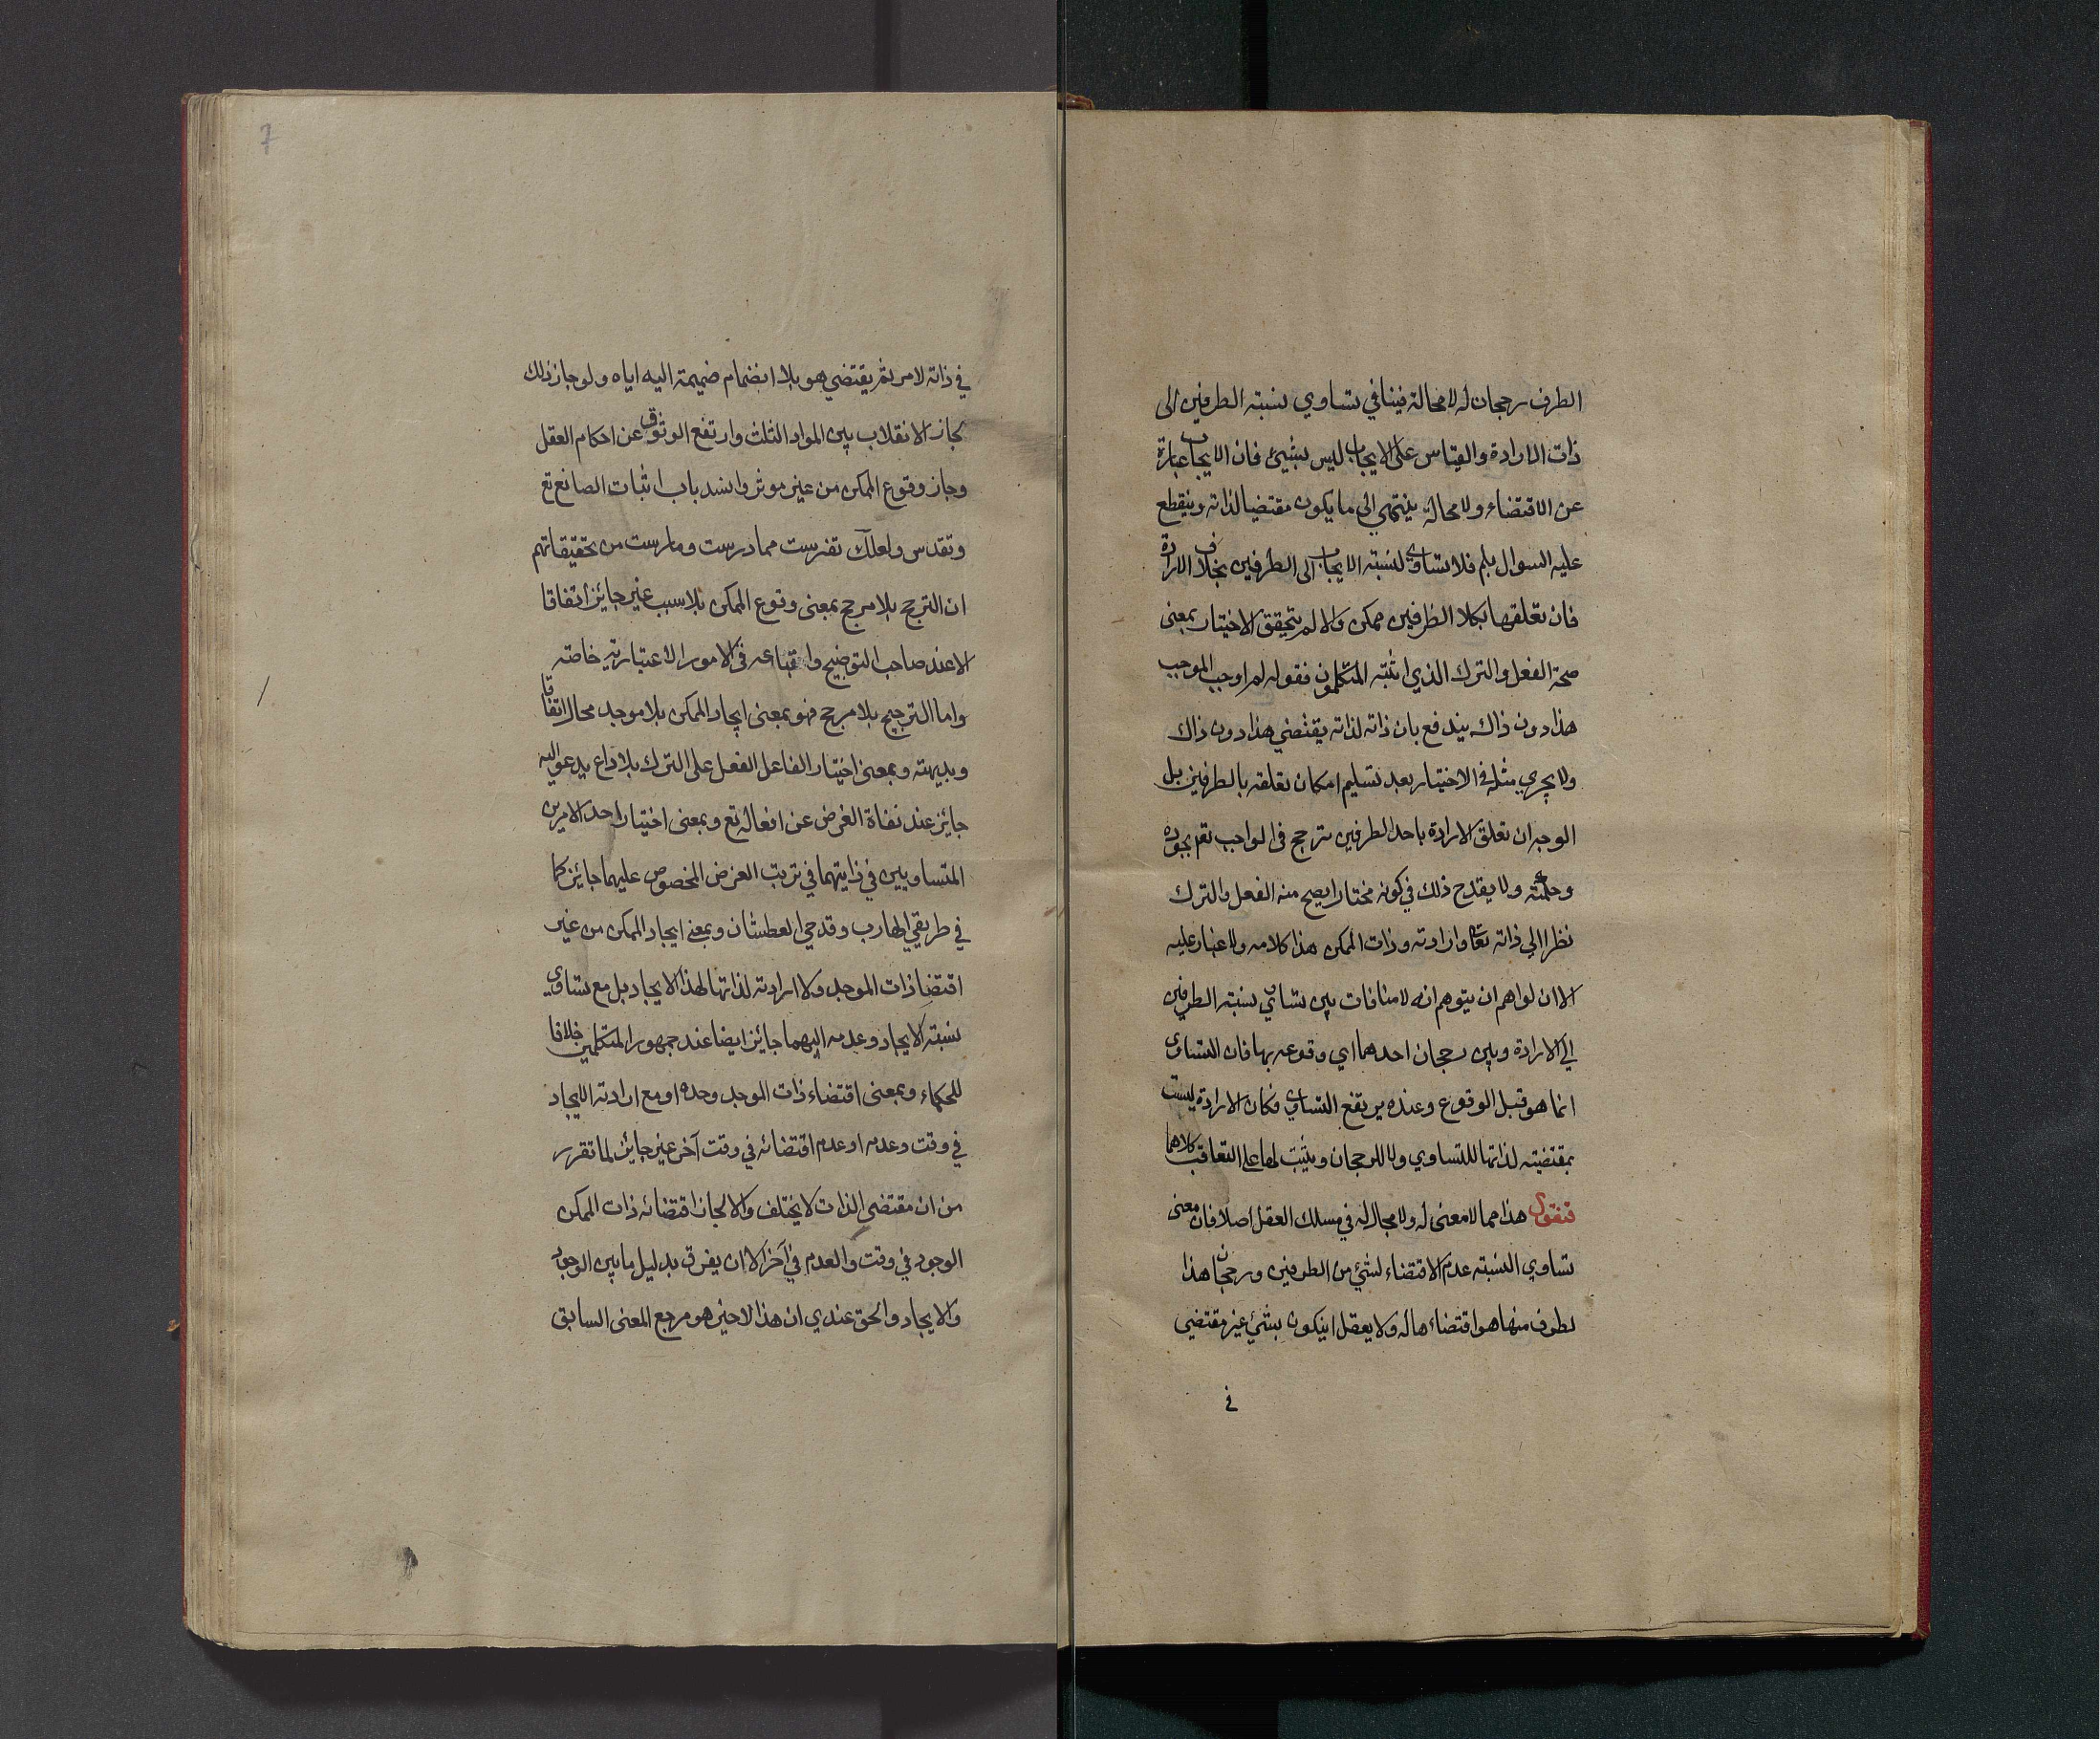 الطرف رجحان له لا محالة فينافي تساوي نسبته الطرفين الى
ذات الارادة والقياس على الايجاب ليس بشيئ فان الايجاب عبارة
عن الاقتضاء ولا محالة ينتهي الى ما يكون مقتضيا لذاته وينقطع
عليه السوال بلم فلا تساوي لنسبته الايجاب الى الطرفين بخلاف الارادة
فان تعلقها بكلا الطرفين ممكن والا لم يتحقق الاختيار بمعنى
صحة الفعل والترك الذي اثبته المتكلمون فقوله لم اوجب الموجب
هذا دون ذاك يندفع بان ذاته لذاته يقتضي هذا دون ذاك
ولا يجري مثله في الاختيار بعد تسليم امكان تعلقه بالطرفين بل
الوجه ان تعلق الارادة باحد الطرفين ترجح في الواجب تعم بجوده
وحكمته ولا يقدح ذلك في كونه مختارا يصح منه الفعل والترك
نظرا الى ذاته تعا وارادته وذات الممكن هذا كلامه ولا غبار عليه
الا ان لواهم ان يتوهم انه لا منافات بين تساوي نسبته الطرفين
الى الارادة وبين رجحان احدهما اي وقوعه بها فان التساوي
انما هو قبل الوقوع وعنده يرتفع التساوي فكان الارادة ليست
بمقتضيته لذاتها للتساوي ولا للرجحان ويثبت لها على التعاقب كلاهما
فنقول هذا مما لا معنى له ولا مجال له في مسلك العقل اصلا فان معنى
تساوي النسبته عدم الاقتضاء لشئ من الطرفين ورجحان هذا
لطرف منها هو اقتضاءها له ولا يعقل ان يكون بشئ غير مقتضي
في
7
في ذاته لامر ثم يقتضي هو بلا انضمام ضميمة اليه اياه ولو جاز ذلك
لجاز الانقلاب بين المواد الثلث وارتفع الوثوق عن احكام العقل
وجاز وقوع الممكن من غير موثر وانسد باب اثبات الصانع تع
وتقدس ولعلك تفرست مما درست ومارست من تحقيقاتهم
ان الترجح بلا مرجح بمعنى وقوع الممكن بلا سبب غير جائز اتفاقا
الا عند صاحب التوضيح واتباعه في الامور الاعتبارية خاصته
واما الترجيح بلا مرجح فهو بمعنى ايجاد الممكن بلا موجد محال اتفاقا
وبديهته وبمعنى اختيار الفاعل الفعل على الترك بلا داع يدعو اليه
جائز عند نفاة الغرض عن افعاله تع وبمعنى اختيار احد الامرين
المتساويين في ذاتيهما في ترتب الغرض المخصوص عليهما جائز كما
في طريقي الهارب وقدحي العطشان وبمعنى ايجاد الممكن من غير
اقتضا ذات الموجد ولا ارادته لذاتها لهذا الايجاد بل مع تساوي
نسبته الايجاد وعدمه اليهما جائز ايضا عند جمهور المتكلمين خلافا
للحكماء وبمعنى اقتضاء ذات الموجد وحده او مع ارادته الايجاد
في وقت وعدمه او عدم اقتضائه في وقت آخر غير جائز لما تقرر
من ان مقتضى الذات لا يختلف والا لجاز اقتضائه ذات الممكن
الوجود في وقت والعدم في آخر الا ان يفرق بدليل ما بين الوجود
والايجاد والحق عندي ان هذا الاخير هو مرجع المعنى السابق